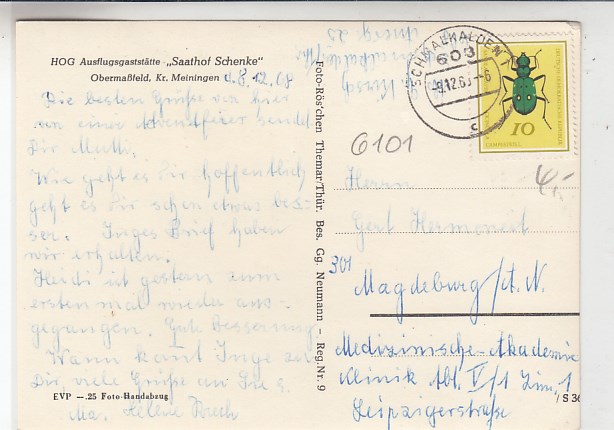 HOG Ausflugsgaststätte „Saathof Schenke"
Obermaßfeld, Kr. Meiningen
d. 8.12.68
Die besten Grüße von hier
von einer Abendfeier sendet
Dir Mutti.
Wie geht es Dir hoffentlich
geht es Dir schon etwas bes-
ser. Inges Brief haben
wir erhalten.
Heidi ist gestern zum
ersten mal wieder aus-
gegangen. Gute Besserung
Wann kommt Inge zu
Dir, viele Grüße an Sie
EVP —.25 Foto-Handabzug
Foto-Rös'chen Themar/Thür. Bes. Gg. Neumann – Reg.Nr. 9
SCHMALKALDEN 1
603
9.12.68-6
c
10
6101
4,-
Herrn
Gert
301
Magdeburg/st. N.
Medizinische-Akademie
Klinik Abt. V/1 Zim. 1
Leipzigerstraße